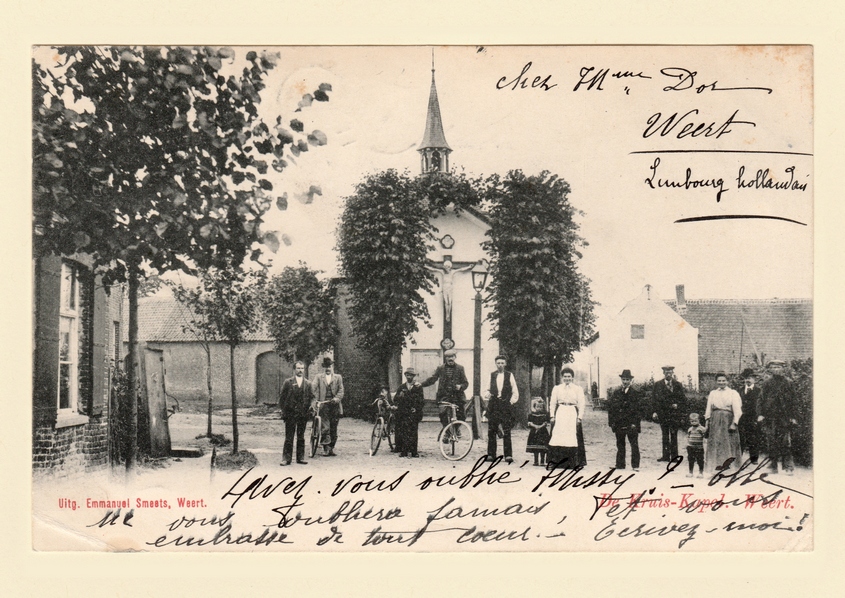 chez Mme Dor
Weert
Limbourg hollandais
Avez-vous oublié Missy? - Elle
Uitg. Emmanuel Smeets, Weert.
De Kruis-Kapel. Weert.
ne vous oubliera jamais, vous
embrasse de tout coeur. - Ecrivez-moi!